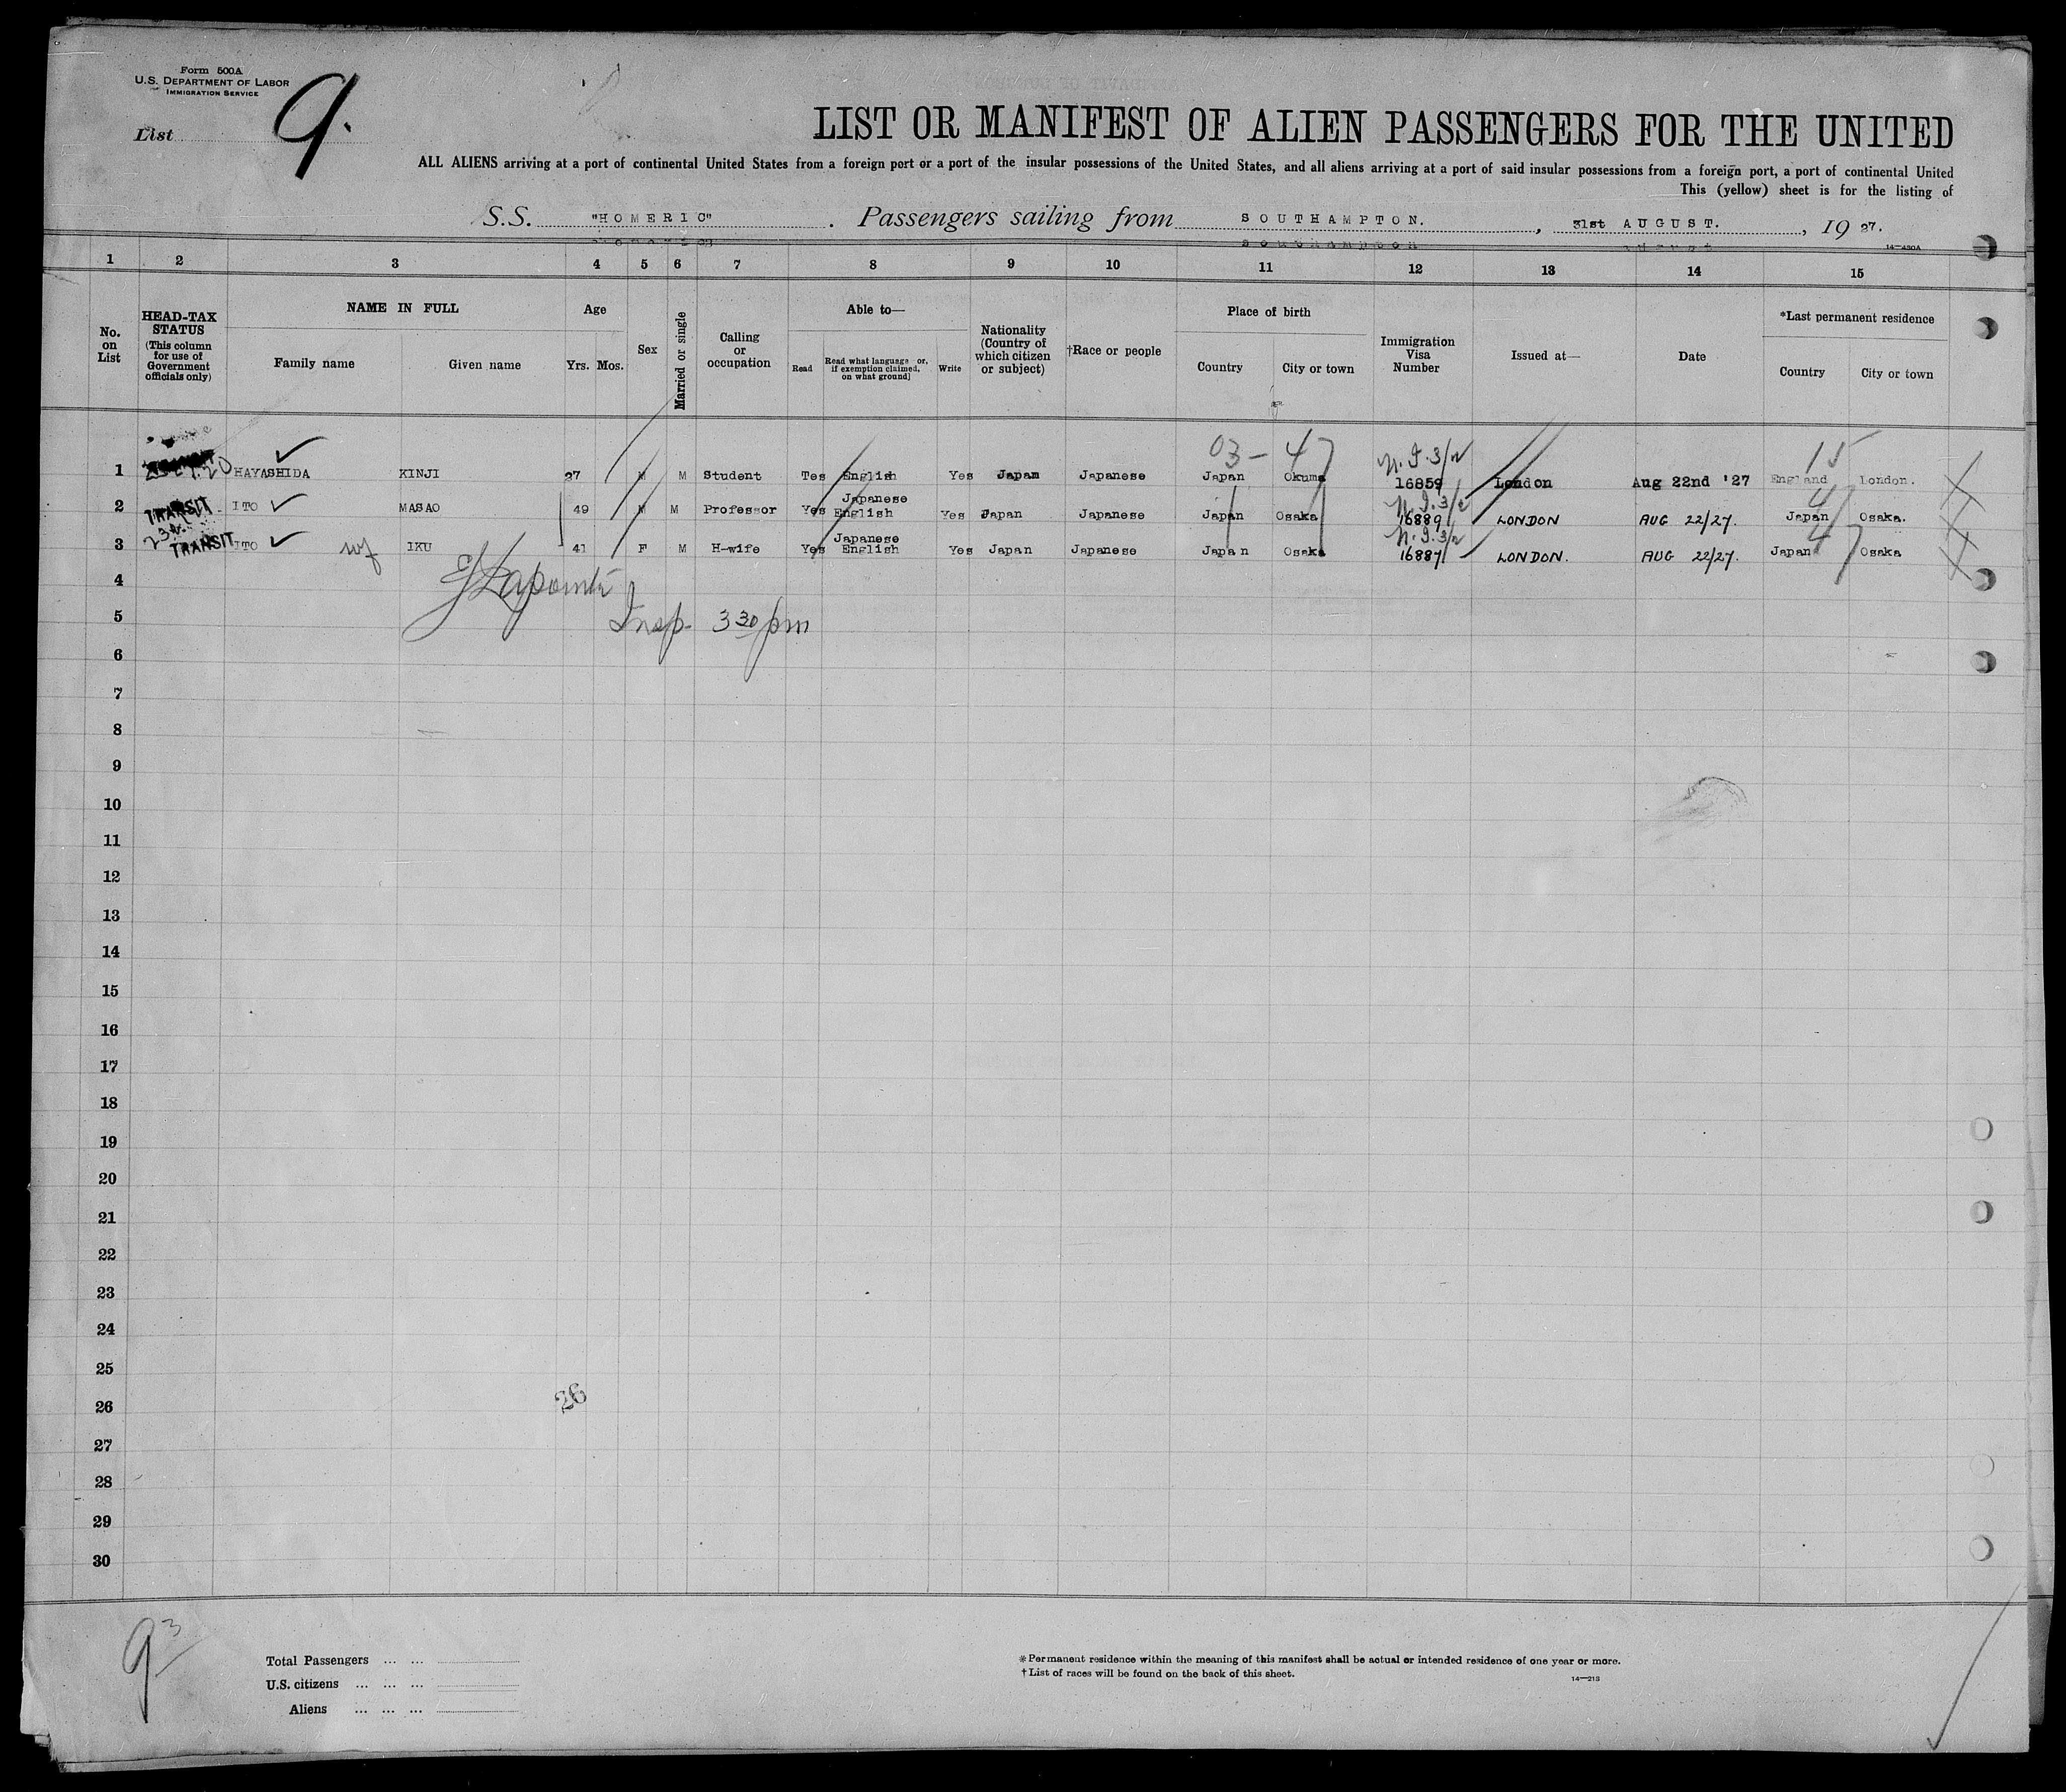 Form 500A
U.S. DEPARTMENT OF LABOR
IMMIGRATION SERVICE
List 9.
LIST OR MANIFEST OF ALIEN PASSENGERS FOR THE UNITED
ALL ALIENS arriving at a port of continental United States from a foreign port or a port of the insular possessions of the United States, and all aliens arriving at a port of said insular possessions from a foreign port, a port of continental United
This (yellow) sheet is for the listing of
S.S. "HOMERIC". Passengers sailing from SOUTHAMPTON., 31st AUGUST., 1927.
14—430A
1 2 3 4 5 6 7 8 9 10 11 12 13 14 15
No. on List
HEAD-TAX STATUS (This column for use of Government officials only)
NAME IN FULL
Family name Given name
Age
Yrs. Mos.
Sex
Married or single
Calling or occupation
Able to—
Read Read what language or, if exemption claimed, on what ground] Write
Nationality (Country of which citizen or subject)
†Race or people
Place of birth
Country City or town
Immigration Visa Number
Issued at—
Date
*Last permanent residence
Country City or town
03- 47 N.I.3/2 15
1 HAYASHIDA KINJI 27 M M Student Yes English Yes Japan Japanese Japan Okuma 16859 London Aug 22nd '27 England London.
Japanese N.I.3/2 4
2 TRANSIT ITO MASAO 49 M M Professor Yes English Yes Japan Japanese Japan Osaka 16889 LONDON AUG 22/27. Japan Osaka.
Japanese N.I.3/2
3 TRANSIT ITO wf IKU 41 F M H-wife Yes English Yes Japan Japanese Japan Osaka 16887 LONDON. AUG 22/27. Japan Osaka
4
Lapointe
5 Insp. 3 30 pm
6
7
8
9
10
11
12
13
14
15
16
17
18
19
20
21
22
23
24
25
26
26
27
28
29
30
9 3
Total Passengers ... ...
U.S. citizens ... ... ...
Aliens ... ... ...
*Permanent residence within the meaning of this manifest shall be actual or intended residence of one year or more.
†List of races will be found on the back of this sheet.
14—213